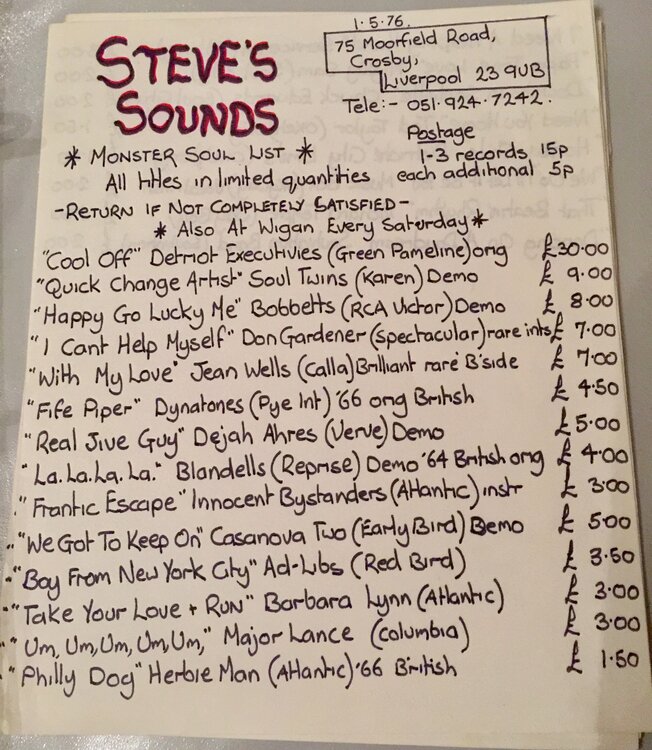 1.5.76.
75 Moorfield Road,
Crosby,
Liverpool 23 9UB
Tele:- 051.924.7242.
STEVE'S
SOUNDS
Postage
1-3 records 15p
each additional 5p
* MONSTER SOUL LIST *
All titles in limited quantities
-RETURN IF NOT COMPLETELY SATISFIED-
* Also At Wigan Every Saturday *
"Cool Off" Detriot Executivies (Green Pameline) orig £30.00
"Quick Change Artist" Soul Twins (Karen) Demo £ 9.00
"Happy Go Lucky Me" Bobbetts (RCA Victor) Demo £ 8.00
"I Cant Help Myself" Don Gardener (spectacular) rare ints £ 7.00
"With My Love" Jean Wells (Calla) Brilliant rare B'side £ 7.00
"Fife Piper" Dynatones (Pye Int) '66 orig British £ 4.50
"Real Jive Guy" Dejah Ahres (Verve) Demo £ 5.00
"La.La.La.La." Blandells (Reprise) Demo '64 British orig £ 4.00
"Frantic Escape" Innocent Bystanders (Atlantic) instr £ 3.00
"We Got To Keep On" Casanova Two (Early Bird) Demo £ 5.00
"Boy From New York City" Ad-Libs (Red Bird) £ 3.50
"Take Your Love + Run" Barbara Lynn (Atlantic) £ 3.00
"Um, Um, Um, Um, Um," Major Lance (columbia) £ 3.00
"Philly Dog" Herbie Man (Atlantic) '66 British £ 1.50